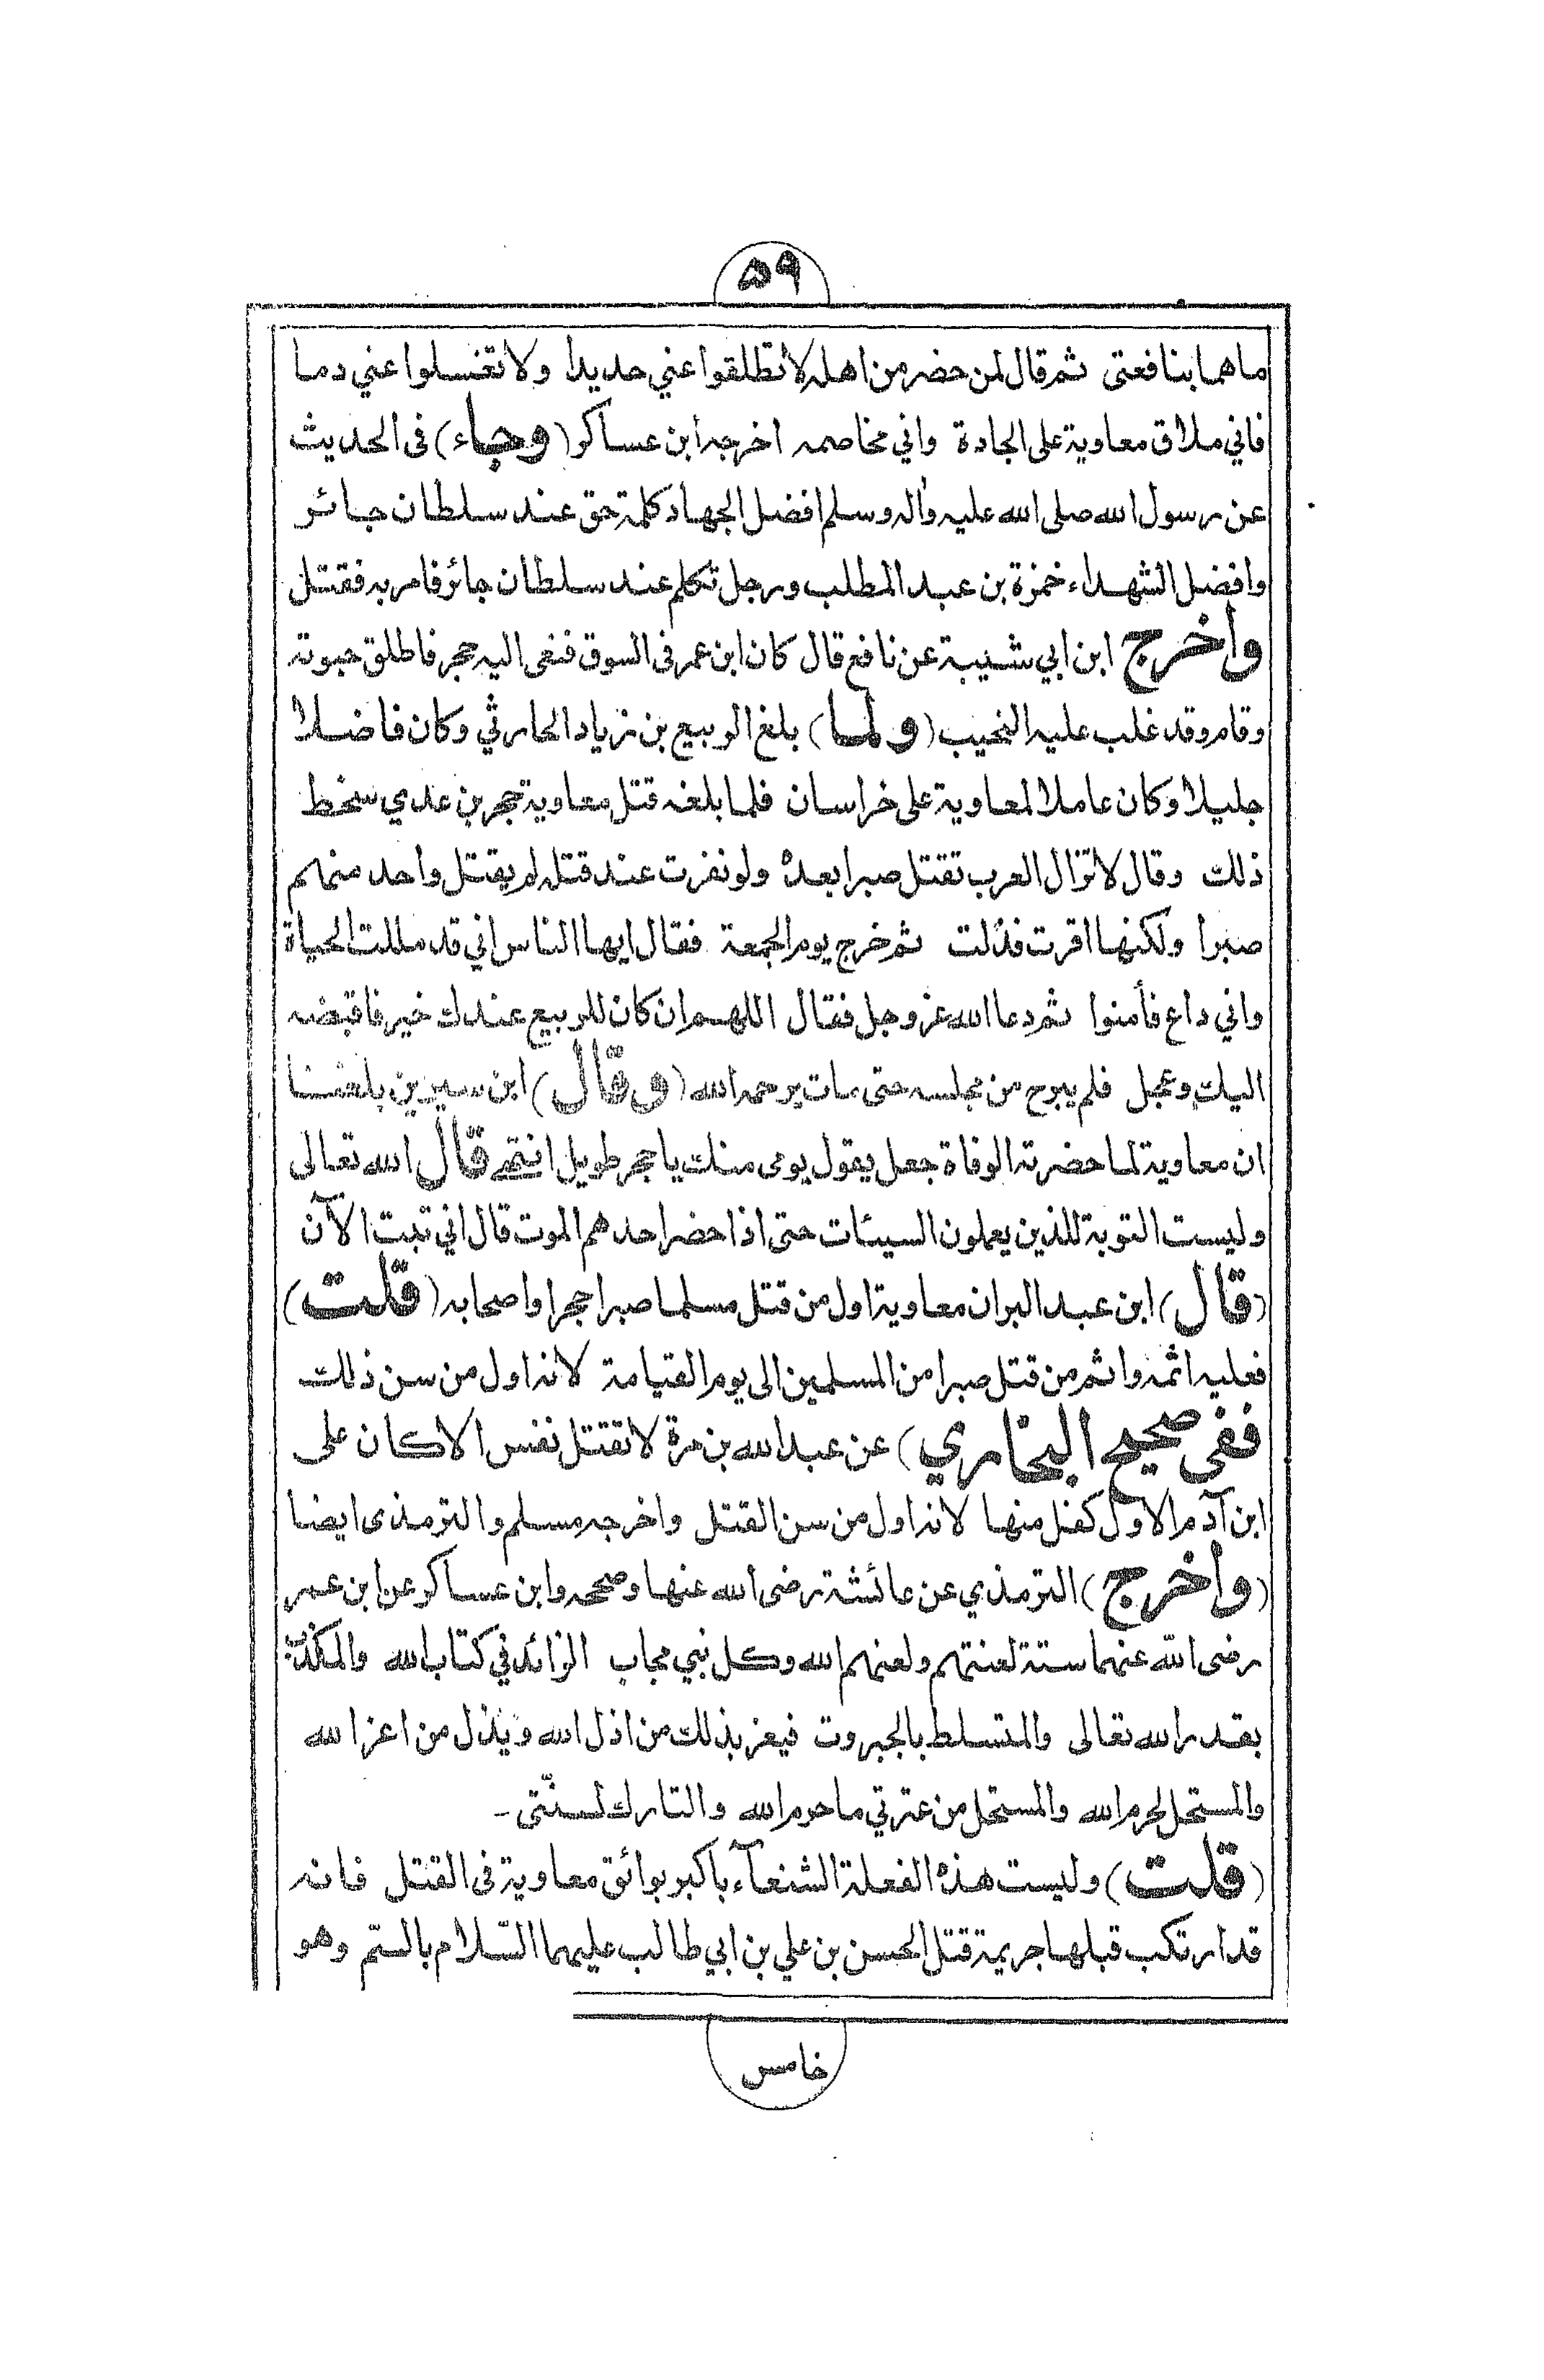 ٥٩
ما هما بنافعتى ثم قال لمن حضر من اهله لا تطلقوا عني حديدا ولا تغسلوا عني دما
فاني ملاق معاوية على الجادة واني مخاصمه اخرجه ابن عساكر (وجاء) فى الحديث
عن رسول الله صلى الله عليه وآله وسلم افضل الجهاد كلمة حق عند سلطان جائر
وافضل الشهداء حمزة بن عبد المطلب ورجل تكلم عند سلطان جائر فامر به فقتل
وأخرج ابن ابي شيبة عن نافع قال كان ابن عمر فى السوق فنعى اليه حجر فاطلق حبوته
وقام وقد غلب عليه النحيب (ولما) بلغ الربيع بن زياد الحارثي وكان فاضلا
جليلا وكان عاملا لمعاوية على خراسان فلما بلغه قتل معاوية حجر بن عدي سخط
ذلك وقال لا تزال العرب تقتل صبرا بعده ولو نفرت عند قتله لم يقتل واحد منهم
صبرا ولكنها اقرت فذلت ثم خرج يوم الجمعة فقال ايها الناس اني قد مللت الحياة
واني داع فأمنوا ثم دعا الله عز وجل فقال اللهم ان كان للربيع عندك خير فاقبضه
اليك وعجل فلم يبرح من مجلسه حتى مات يرحمه الله (وقال) ابن سيرين بلغنا
ان معاوية لما حضرته الوفاة جعل يقول يومى منك يا حجر طويل انتهى قال الله تعالى
وليست التوبة للذين يعملون السيئات حتى اذا حضر احدهم الموت قال اني تبت الآن
(قال) ابن عبد البر ان معاوية اول من قتل مسلما صبرا حجرا واصحابه (قلت)
فعليه اثمه واثم من قتل صبرا من المسلمين الى يوم القيامة لانه اول من سن ذلك
ففى صحيح البخاري) عن عبد الله بن مرة لا تقتل نفس الا كان على
ابن آدم الاول كفل منها لانه اول من سن القتل واخرجه مسلم والترمذى ايضا
(وأخرج) الترمذي عن عائشة رضى الله عنها وصححه وابن عساكر عن ابن عمر
رضى الله عنهما ستة لعنتهم ولعنهم الله وكل نبي مجاب الزائد في كتاب الله والمكذب
بقدر الله تعالى والمتسلط بالجبروت فيعز بذلك من اذل الله ويذل من اعز الله
والمستحل لحرم الله والمستحل من عترتي ما حرم الله والتارك لسنّتى -
(قلت) وليست هذه الفعلة الشنعآء باكبر بوائق معاوية فى القتل فانه
قد ارتكب قبلها جريمة قتل الحسن بن علي بن ابي طالب عليهما السّلام بالسّم وهو
خامس